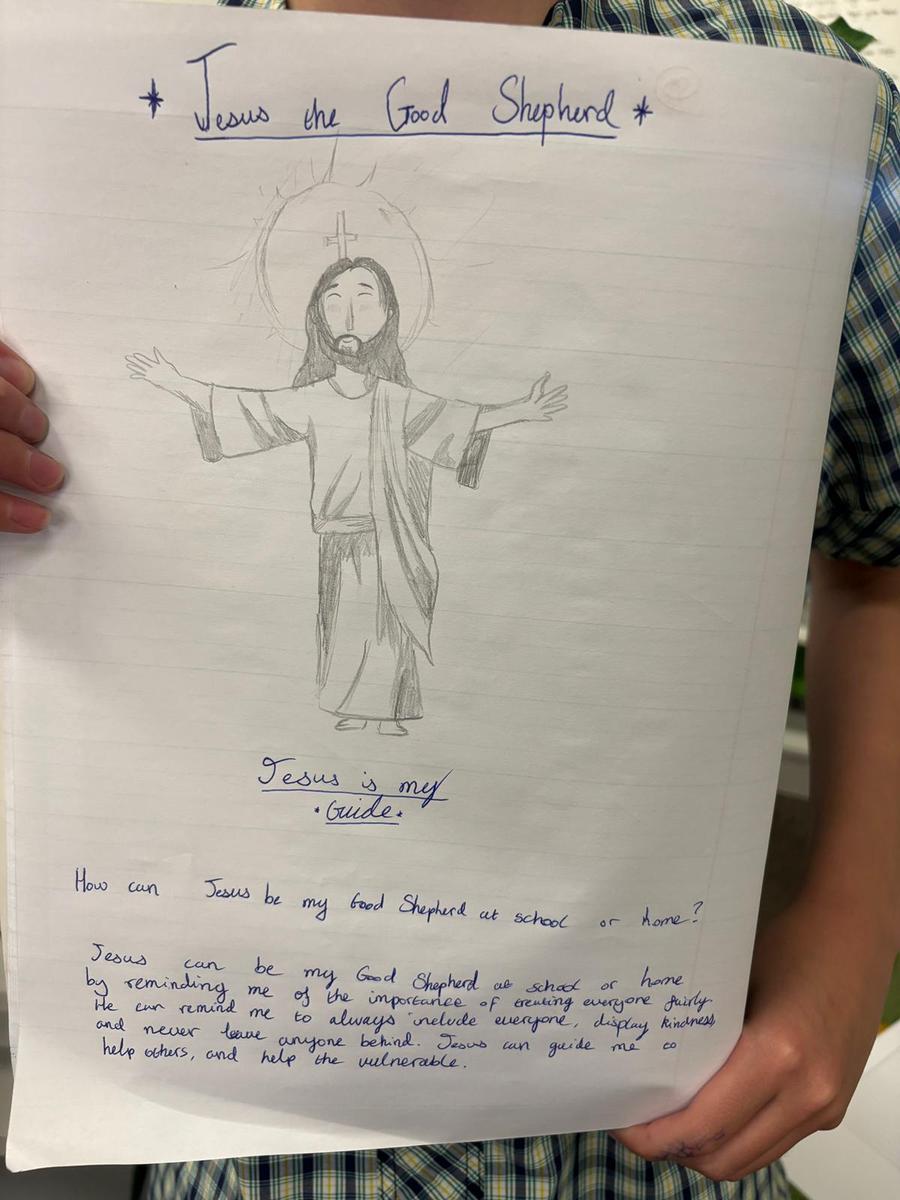 * Jesus the Good Shepherd *
Jesus is my
• Guide •
How can Jesus be my Good Shepherd at school or home?
Jesus can be my Good Shepherd at school or home
by reminding me of the importance of treating everyone fairly.
He can remind me to always include everyone, display kindness,
and never leave anyone behind. Jesus can guide me to
help others, and help the vulnerable.